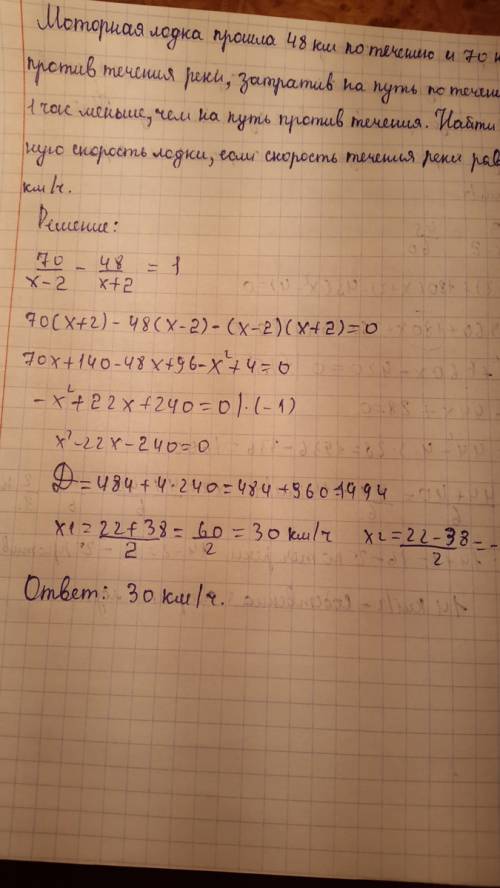 Моторная лодка прошла 48 км по течению и 70
против течения реки, затратив на путь по
1 час меньше, чем на путь против течения. Найти
ную скорость лодки, если скорость течения реки
км/ч.
Решение:
70/(x-2) - 48/(x+2) = 1
70(x+2)-48(x-2)-(x-2)(x+2)=0
70x+140-48x+96-x²+4=0
-x²+22x+240=0 |·(-1)
x²-22x-240=0
D=484+4·240=484+960=1444
x1=(22+38)/2=60/2=30 км/ч x2=(22-38)/2=-
Ответ: 30 км/ч.